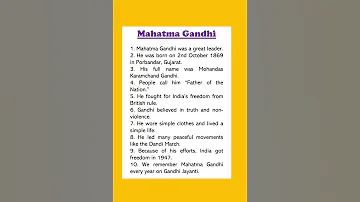 Mahatma Gandhi
1. Mahatma Gandhi was a great leader.
2. He was born on 2nd October 1869
in Porbandar, Gujarat.
3. His full name was Mohandas
Karamchand Gandhi.
4. People call him "Father of the
Nation."
5. He fought for India's freedom from
British rule.
6. Gandhi believed in truth and non-
violence.
7. He wore simple clothes and lived a
simple life.
8. He led many peaceful movements
like the Dandi March.
9. Because of his efforts, India got
freedom in 1947.
10. We remember Mahatma Gandhi
every year on Gandhi Jayanti.